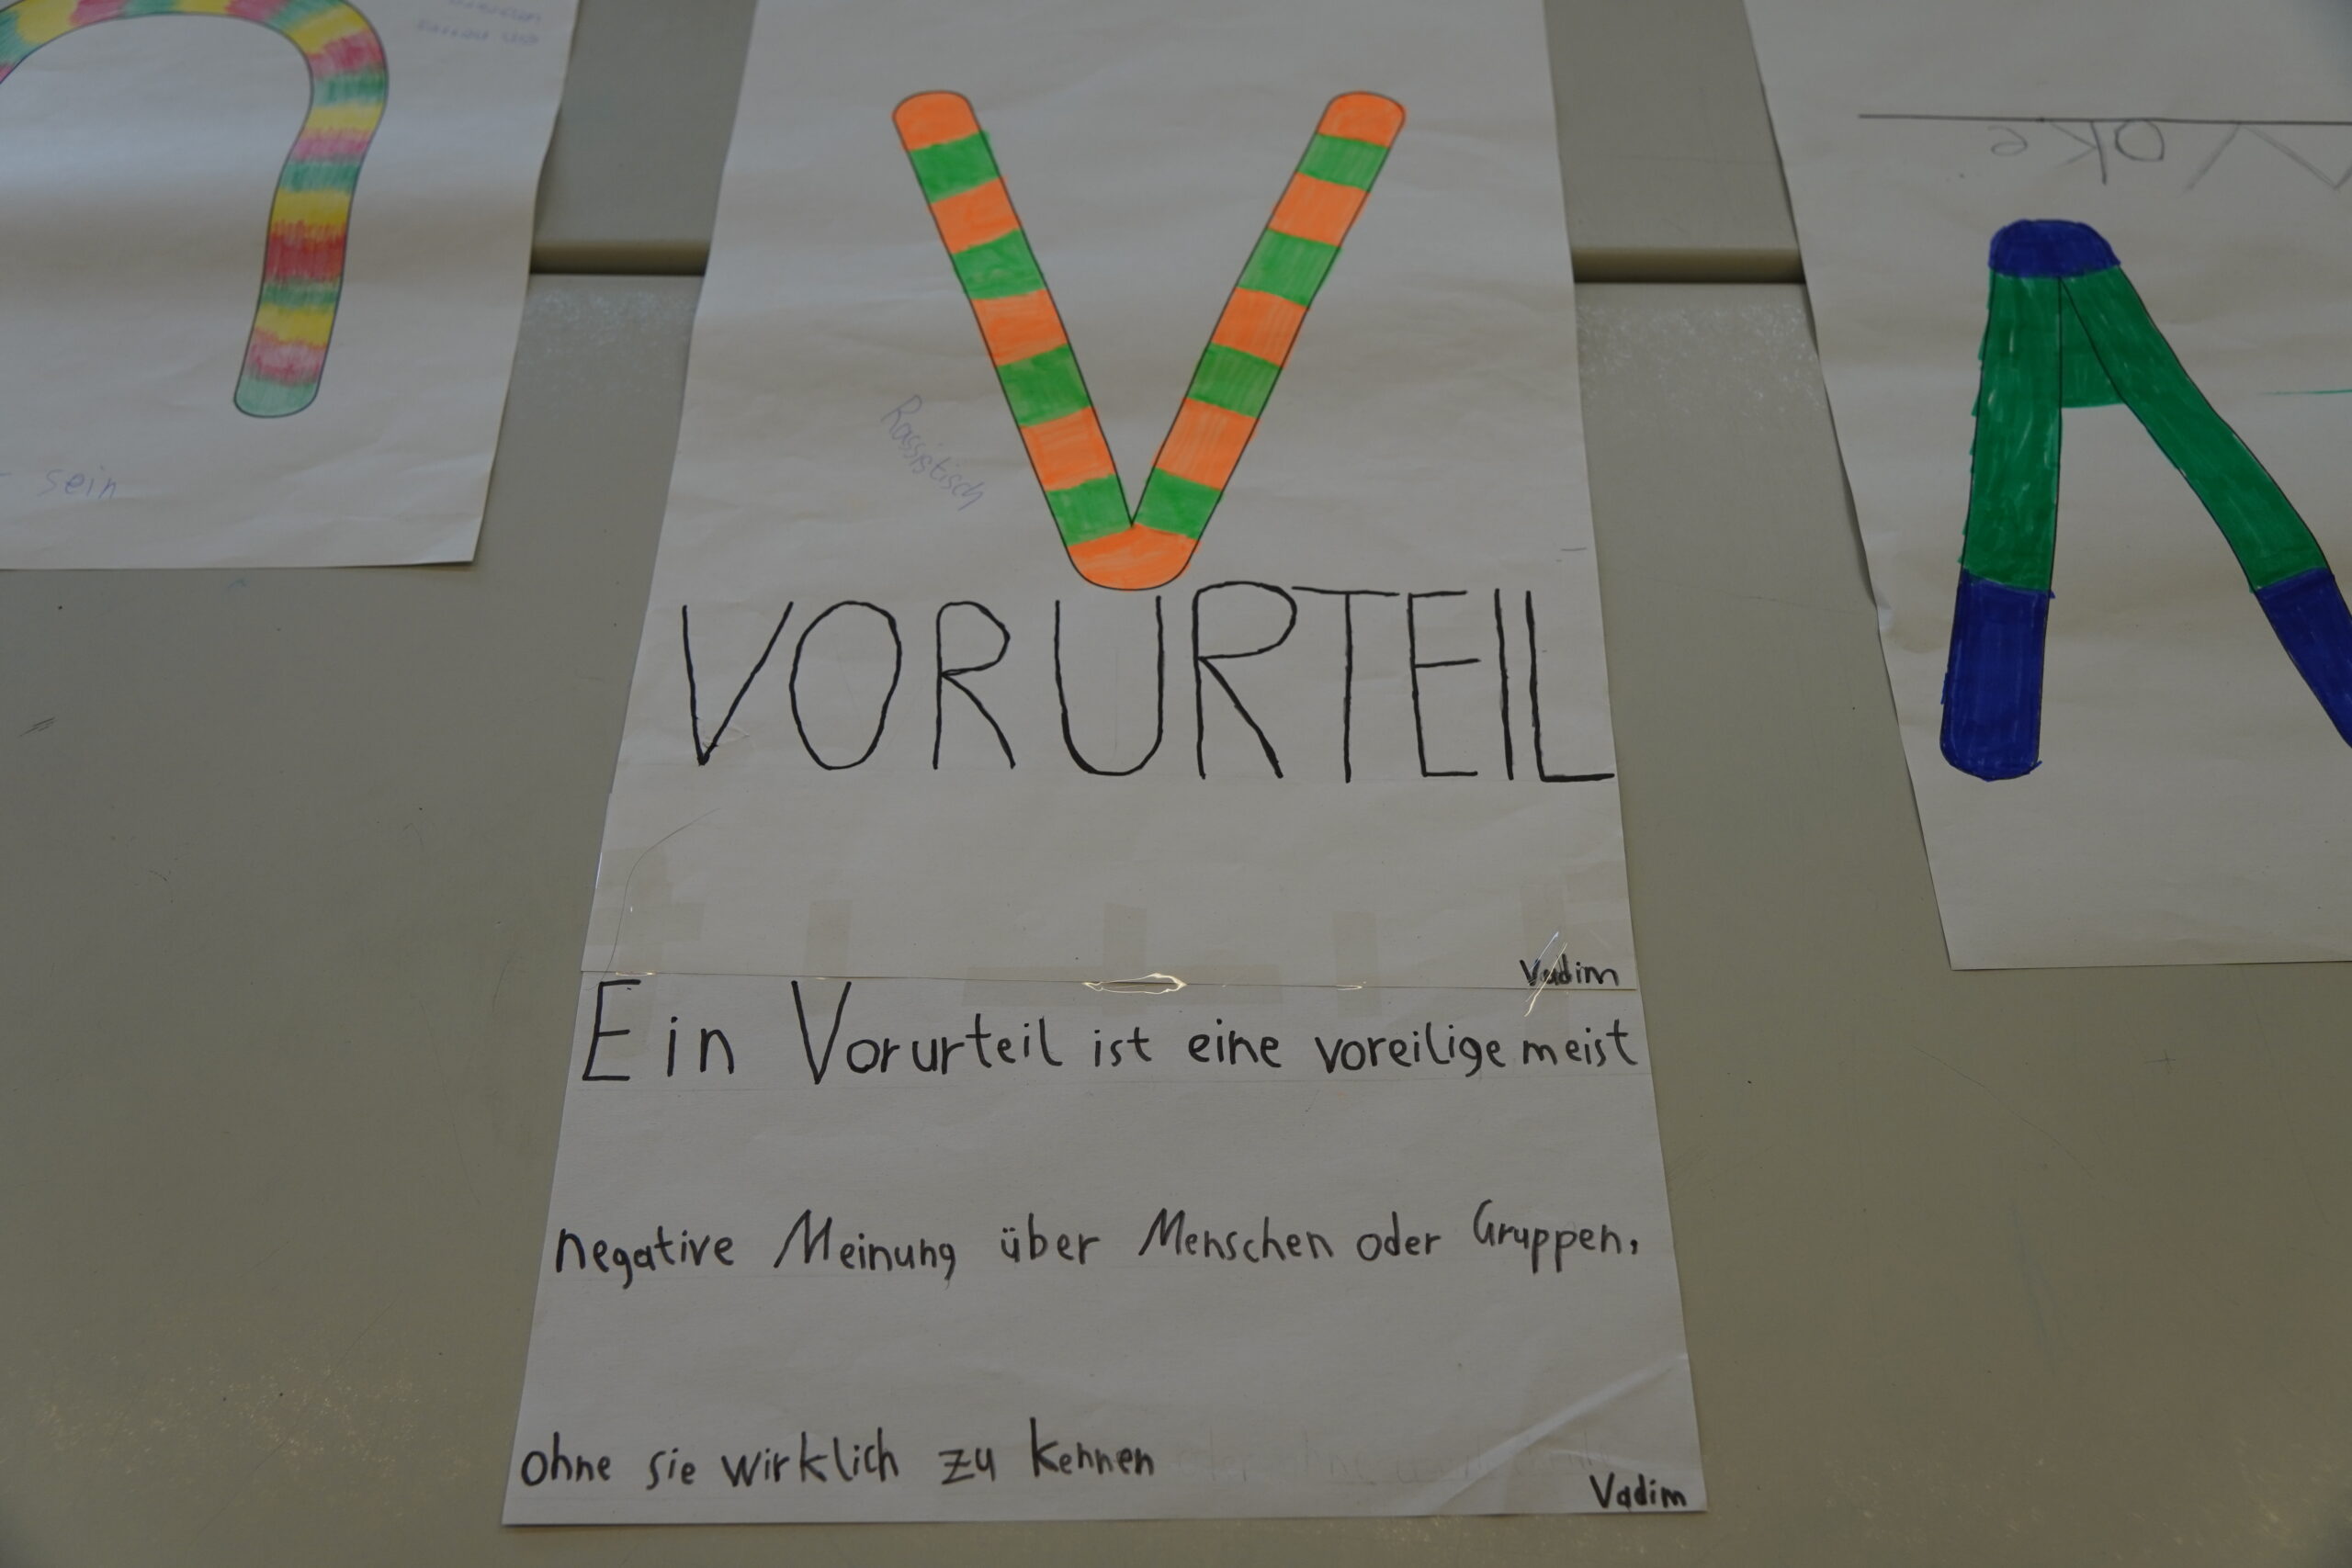 sein
V
Rassistisch
VORURTEIL
Vadim
Ein Vorurteil ist eine voreilige meist
negative Meinung über Menschen oder Gruppen,
ohne sie wirklich zu kennen
Vadim